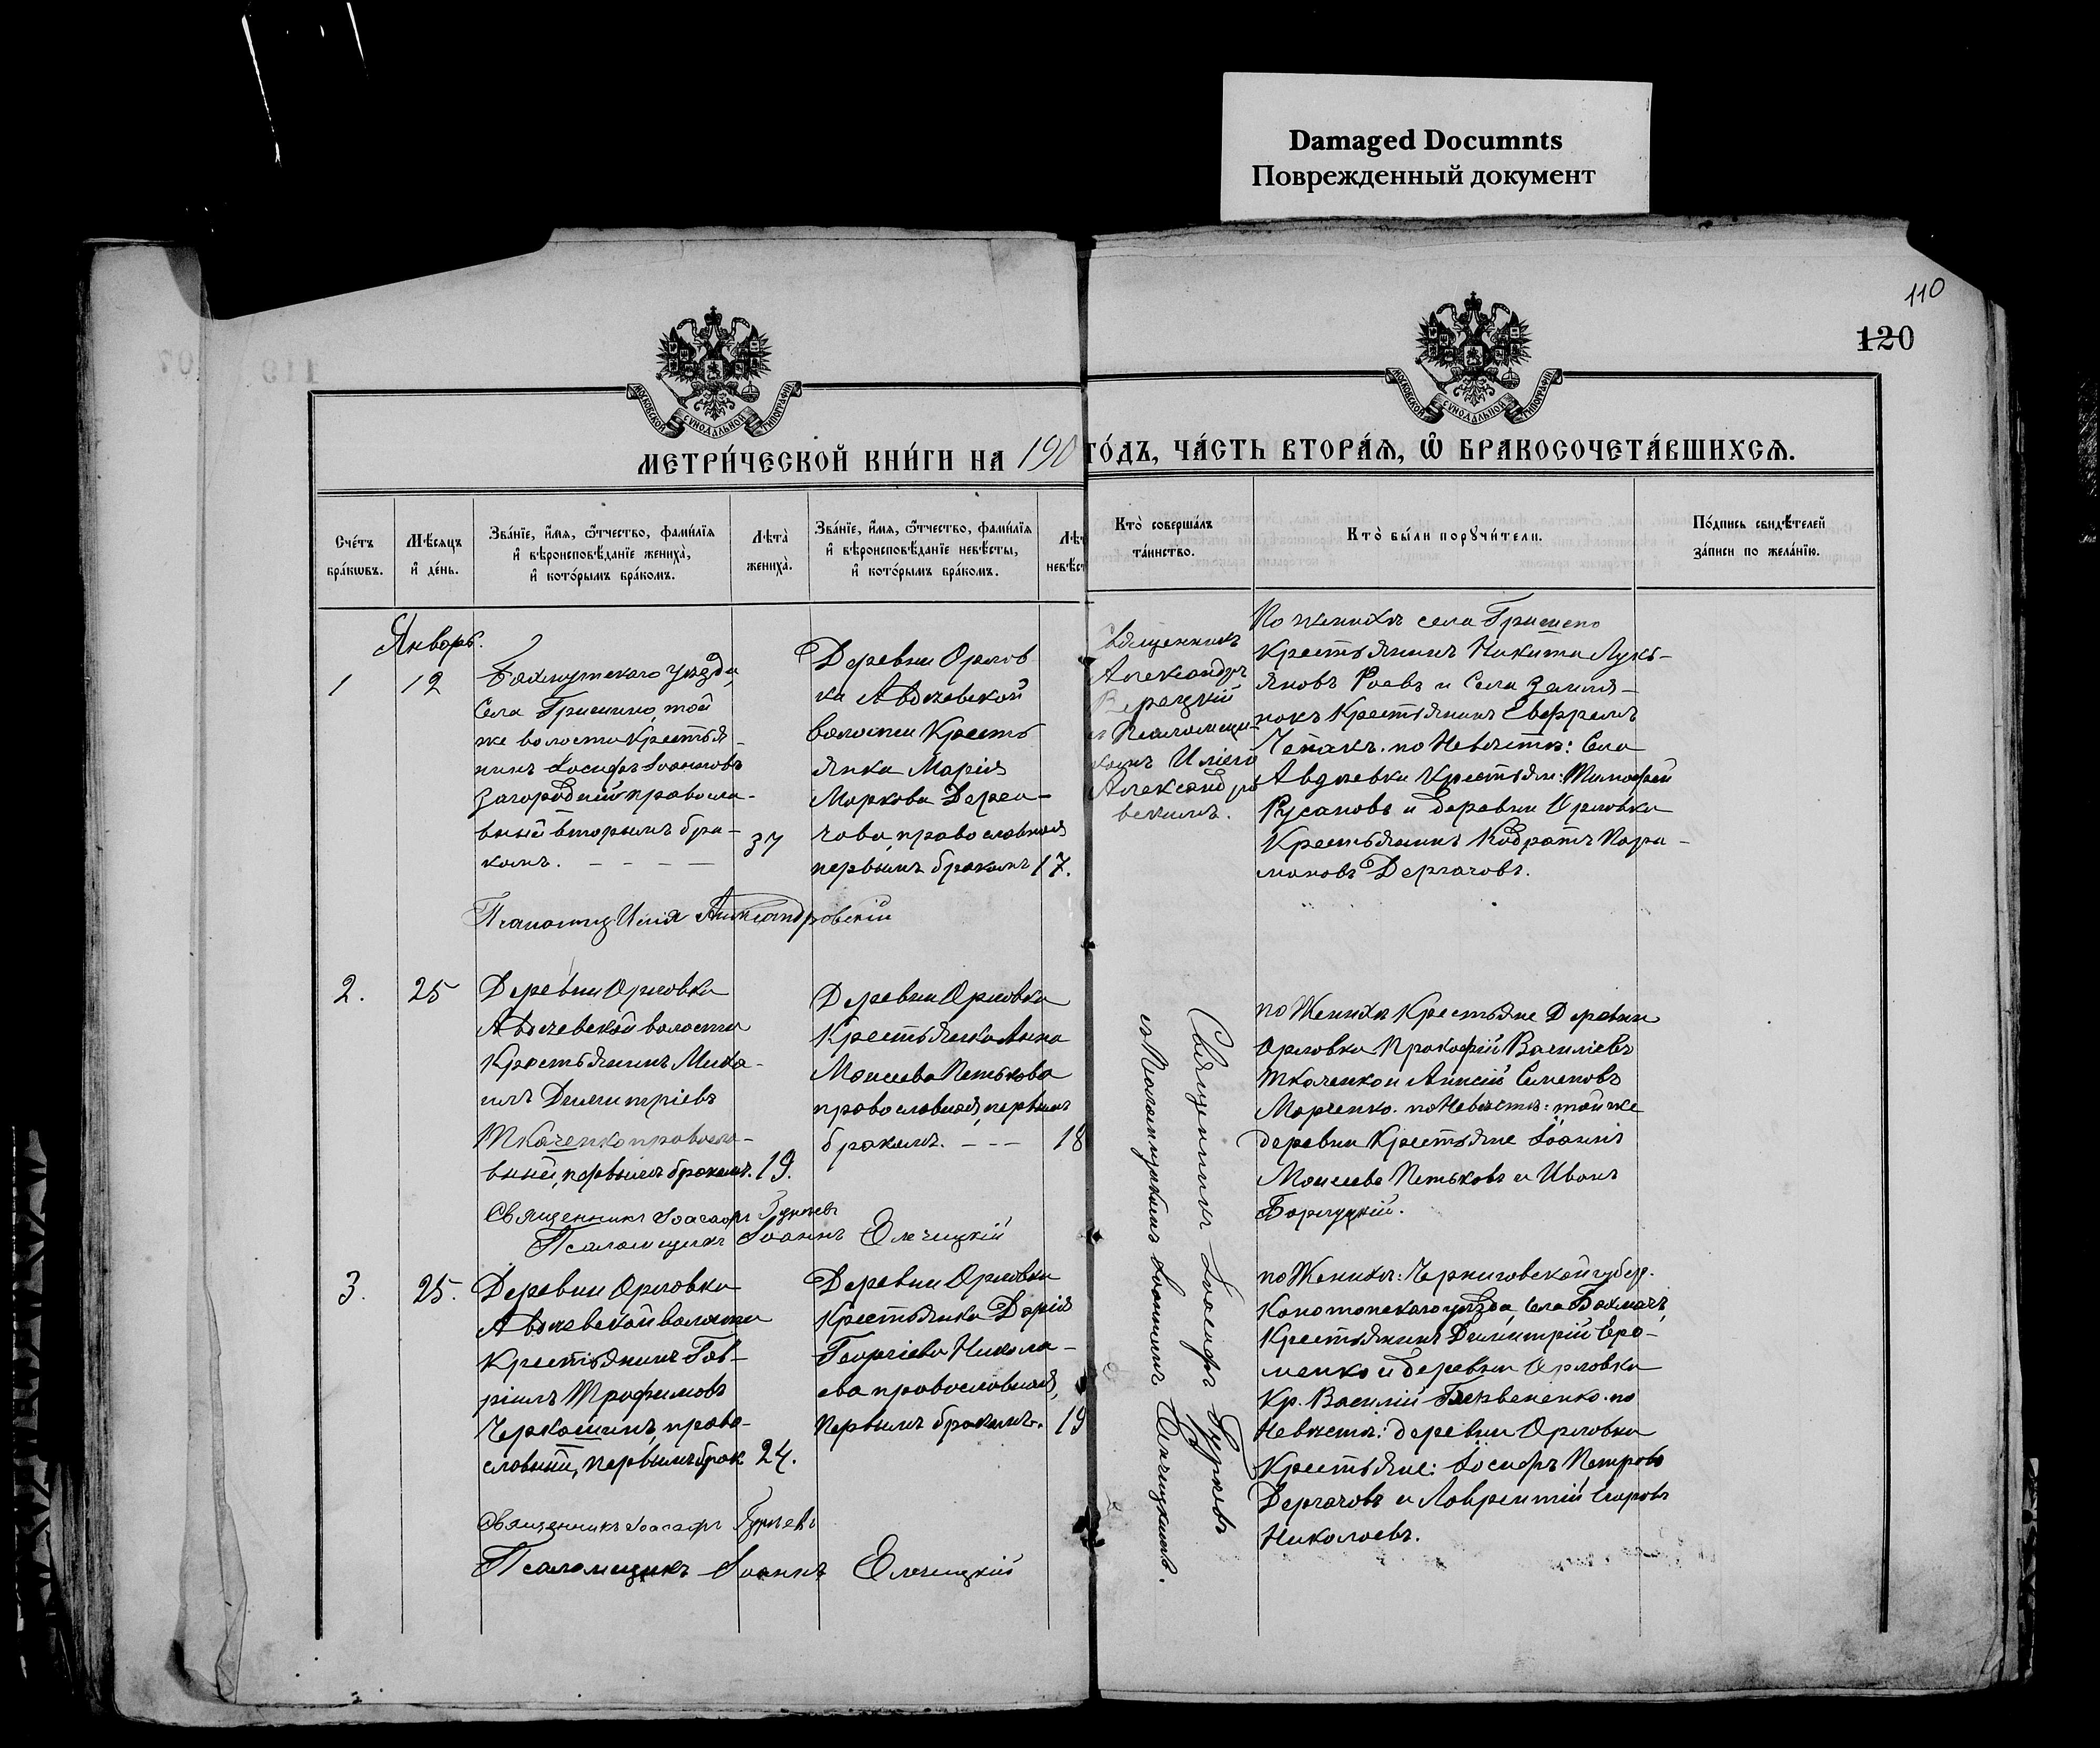 Damaged Documnts
Поврежденный документ
110
120
МОСКОВСКОЙ СѴНОДАЛЬНОЙ ТИПОГРАФІИ
МОСКОВСКОЙ СѴНОДАЛЬНОЙ ТИПОГРАФІИ
МЕТРИ́ЧЕСКОЙ КНИ́ГИ НА 190
ГО́ДЪ, ЧА́СТЬ ВТОРА́Ѧ, Ѽ БРАКОСОЧЕТА́ВШИХСѦ.
Сче́тъ
бра́кωвъ.
Мѣ́сѧцъ
и҆ де́нь.
Зва́нїе, и҆́мѧ, ѻ҆́тчество, фами́лїѧ
и҆ вѣроисповѣ́данїе жениха̀,
и҆ кото́рымъ бра́комъ.
Лѣта̀
жениха̀.
Зва́нїе, и҆́мѧ, ѻ҆́тчество, фами́лїѧ
и҆ вѣроисповѣ́данїе невѣ́сты,
и҆ кото́рымъ бра́комъ.
Лѣт
невѣст
Кто̀ соверша́лъ
та́инство.
Кто̀ бы́ли порꙋчи́тели.
По́дпись свидѣ́телей
за́писи по жела́нїю.
Январь.
1
12
Бахмутскаго уѣзда,
Села Гришино, той
же волости Крестья-
нинъ Іосифъ Іоанновъ
Загородній правосла-
вный вторымъ бра-
комъ. - - - -
37
Деревни Орлов
ка Авдѣевской
волости Кресть
янка Марія
Маркова Дерга-
чова, православная
первымъ бракомъ
17.
Священникъ
Александръ
Верецкій
и Псаломщи-
комъ Иліею
Александро
вскимъ.
По женихѣ села Гришено
Крестьянинъ Никита Лукь-
яновъ Роевъ и Села Земля-
нокъ Крестьянинъ Евфремъ
Чепакъ. по Невѣстѣ: Села
Авдѣевки Крестьян: Тимофей
Русановъ и деревни Орловка
Крестьянинъ Кодратъ Пара-
моновъ Дергачовъ.
Псаломщ. Илія Александровскій
2.
25
Деревни Орловка
Авдѣевской волости
Крестьянинъ Миха-
илъ Димитріевъ
Ткаченко правосла-
вный, первымъ бракомъ.
19.
Деревни Орловка
Крестьянка Анна
Моисеева Петькова
православная, первымъ
бракомъ. - - -
18
по Женихѣ Крестьяне Деревни
Орловка Прокофій Василіевъ
Ткаченко и Алексій Сименовъ
Марченко. по Невѣстѣ: той же
деревни Крестьяне Іоаннъ
Моисеевъ Петьковъ и Иванъ
Борлуцкій.
Священникъ Іоасафъ Гурьевъ
Псаломщикъ Іоаннъ Елечицкій
Священникъ Іоасафъ Гурьевъ
съ Псаломщикомъ Іоанномъ Елечицкимъ.
3.
25.
Деревни Орловка
Авдѣевской волости
Крестьянинъ Гав-
ріилъ Трофимовъ
Черкашинъ, право-
славный, первымъ брак
24.
Деревни Орловка
Крестьянка Дарія
Георгіева Никола-
ева православная,
первымъ бракомъ.
19
по Женихѣ: Черниговской губер.
Конотопскаго уѣзда, села Бахмачъ,
Крестьянинъ Димитрій Ерo-
менко и деревни Орловка
Кр. Василій Бервененко. по
Невѣстѣ: деревни Орловка
Крестьяне: Іосифъ Петровъ
Дергачовъ и Лаврентій Егоровъ
Николаевъ.
Священникъ Іоасафъ Гурьевъ
Псаломщикъ Іоаннъ Елечицкій